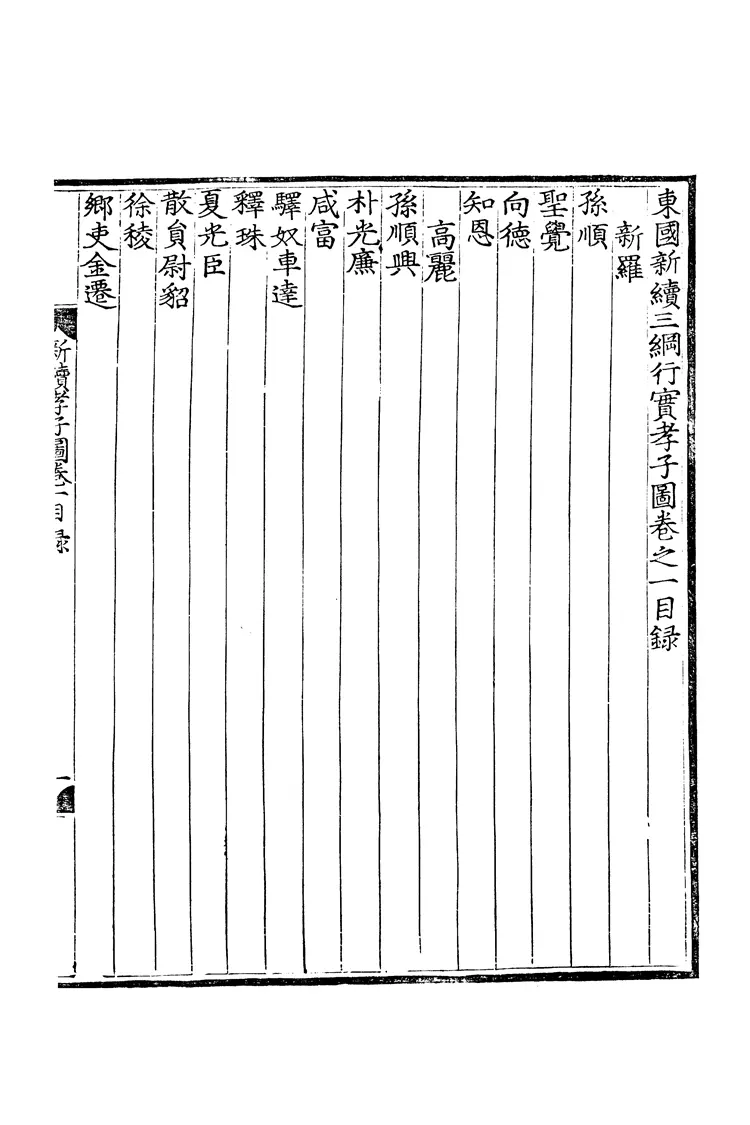 東國新續三綱行實孝子圖卷之一目録
新羅
孫順
聖覺
向德
知恩
高麗
孫順興
朴光廉
咸富
驛奴車達
釋珠
夏光臣
散員尉貂
徐稜
鄉吏金遷
新續孝子圖卷一目録
一